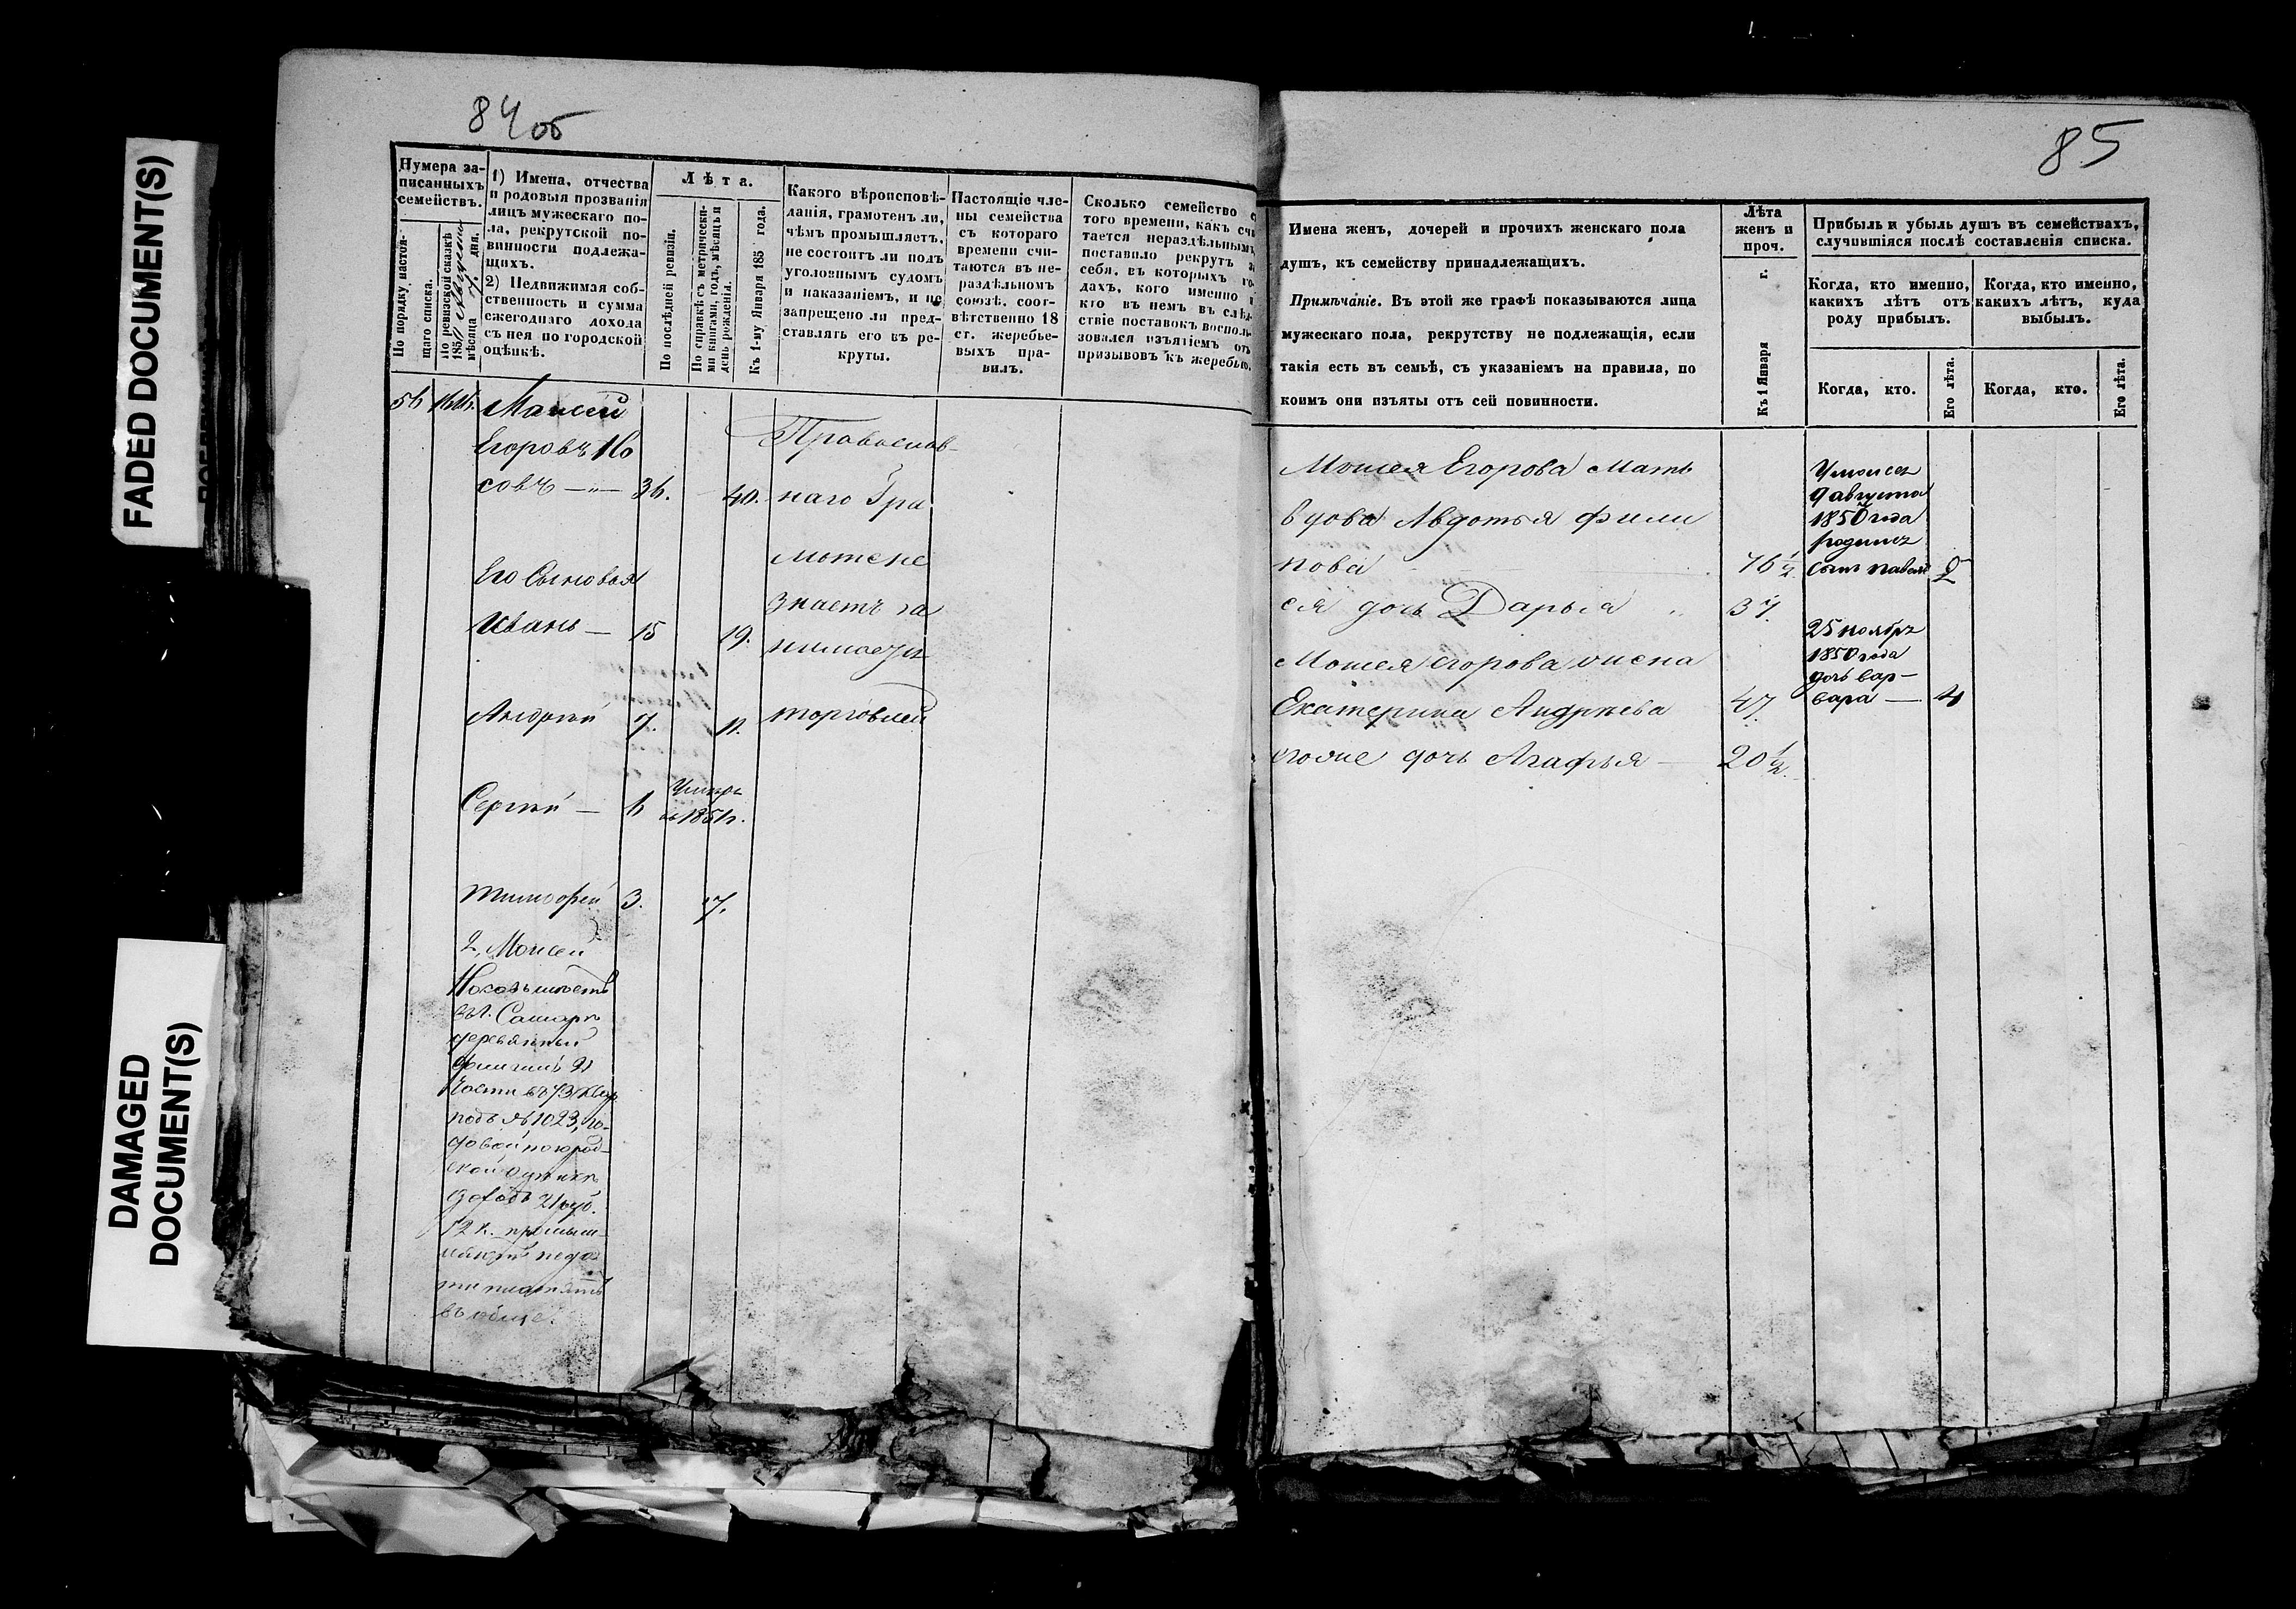 FADED DOCUMENT(S)
DAMAGED
DOCUMENT(S)
84 об
Нумера за-
писанныхъ
семействъ.
По порядку настоя-
щаго списка.
По ревизской сказкѣ
185
мѣсяца дня.
1) Имена, отчества
и родовыя прозванія
лицъ мужескаго по-
ла, рекрутской по-
винности подлежа-
щихъ.
2) Недвижимая соб-
ственность и сумма
ежегоднаго дохода
съ нея по городской
оцѣнкѣ.
Лѣта.
По послѣдней ревизіи.
По справкѣ съ метрически-
ми книгами, годъ, мѣсяцъ и
день рожденія.
Къ 1-му Января 185 года.
Какого вѣроисповѣ-
данія, грамотенъ ли,
чѣмъ промышляетъ,
не состоитъ ли подъ
уголовнымъ судомъ
и наказаніемъ, и не
запрещено ли пред-
ставлять его въ ре-
круты.
Настоящіе чле-
ны семейства
съ котораго
времени счи-
таются въ не-
раздѣльномъ
союзѣ, соот-
вѣтственно 18
ст. жеребье-
выхъ пра-
вилъ.
Сколько семейство с
того времени, какъ счи
тается нераздѣльнымъ,
поставило рекрутъ за
себя, въ которыхъ го-
дахъ, кого именно и
кто въ немъ въ слѣд-
ствіе поставокъ восполь-
зовался изъятіемъ отъ
призывовъ къ жеребью.
56
Моисей
Егоровъ Но
совъ — 36. 40.
Православ-
наго Гра
мотѣ не
знаетъ за
нимается
торговлей
Его Сыновья
Иванъ — 15 19.
Андрей 7. 11.
Сергѣй — 6 Умеръ
въ 1851 г.
Тимофей 3. 7.
2, Моисей
въ г. Самарѣ
деревянный
флигель
части въ 73 квар
подъ № 1023, го-
довой по город-
ской оцѣнкѣ
доходъ 21 руб.
12 к.
платятъ
въ обще.
85
Имена женъ, дочерей и прочихъ женскаго пола
душъ, къ семейству принадлежащихъ.
Примѣчаніе. Въ этой же графѣ показываются лица
мужескаго пола, рекрутству не подлежащія, если
такія есть въ семьѣ, съ указаніемъ на правила, по
коимъ они изъяты отъ сей повинности.
Лѣта
женъ и
проч.
Къ 1 Января г.
Прибыль и убыль душъ въ семействахъ,
случившіяся послѣ составленія списка.
Когда, кто именно,
какихъ лѣтъ отъ
роду прибылъ.
Когда, кто именно,
какихъ лѣтъ, куда
выбылъ.
Когда, кто.
Его лѣта.
Когда, кто.
Его лѣта.
Моисея Егорова мать
вдова Авдотья Фили
пова 76 ½
ея дочь Дарья 37.
Моисея Егорова жена
Екатерина Андреева 47.
его же дочь Агафья — 20 ½.
У моисея
9 августа
1850 года
родился
сынъ павелъ
25 ноября
1850 года
дочь вар-
вара — 4